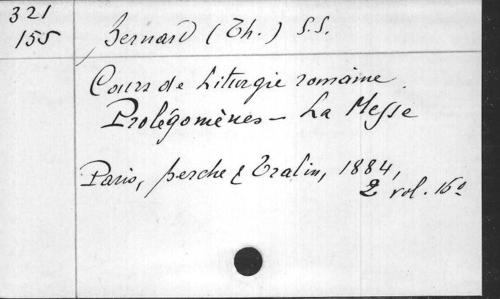 321
155
Bernard (Th.) S.S.
Cours de Liturgie romaine
Prolégomènes - La Messe
Paris, berche & Tralin, 1884,
2 vol. 16º